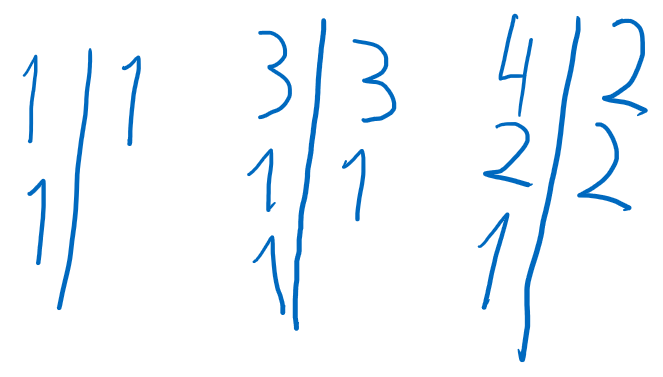 1 | 1
1 |
3 | 3
1 | 1
1 |
4 | 2
2 | 2
1 |